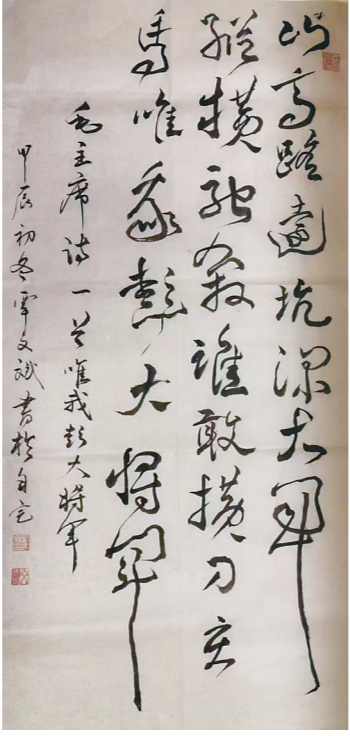 山高路遠坑深大軍
縱橫馳奔誰敢橫刀立
馬唯我彭大將軍
毛主席詩一首唯我彭大將軍
甲辰初冬覃文斌書於自宅